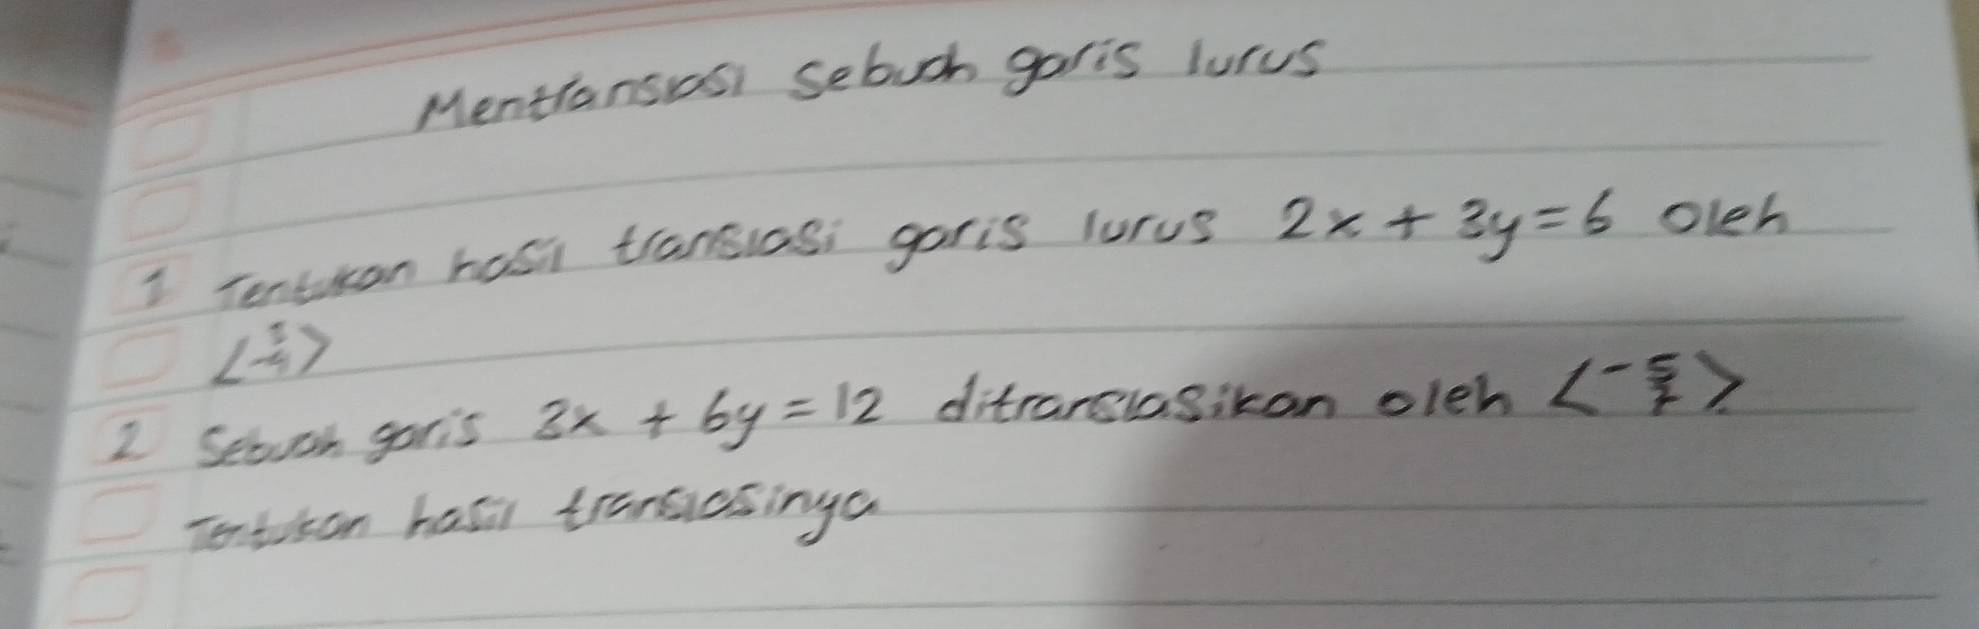 Mentranslasi sebuah garis lurus
1 Tentukan hasil translasi garis lurus 2x + 3y = 6 oleh
2 Sebuah garis 3x + 6y = 12 ditranslasikan oleh
Tentukan hasil translasinya